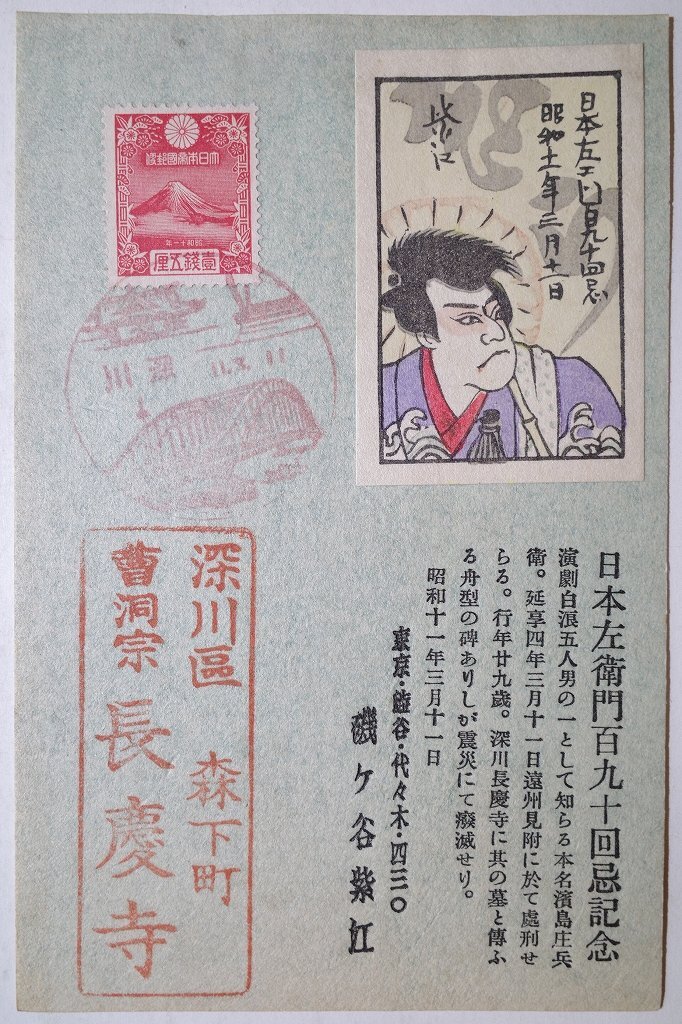 日本左エ門百九十回忌
昭和十一年三月十一日
紫江
大日本帝國郵便
昭和十一年
壹錢五厘
深川
11.3.11
日本左衛門百九十回忌記念
演劇白浪五人男の一として知らる本名濱島庄兵
衛。延享四年三月十一日遠州見附に於て處刑せ
らる。行年廿九歳。深川長慶寺に其の墓と傳ふ
る舟型の碑ありしが震災にて癈滅せり。
昭和十一年三月十一日
東京・澁谷・代々木・四三〇
磯ヶ谷紫江
深川區 森下町
曹洞宗 長慶寺